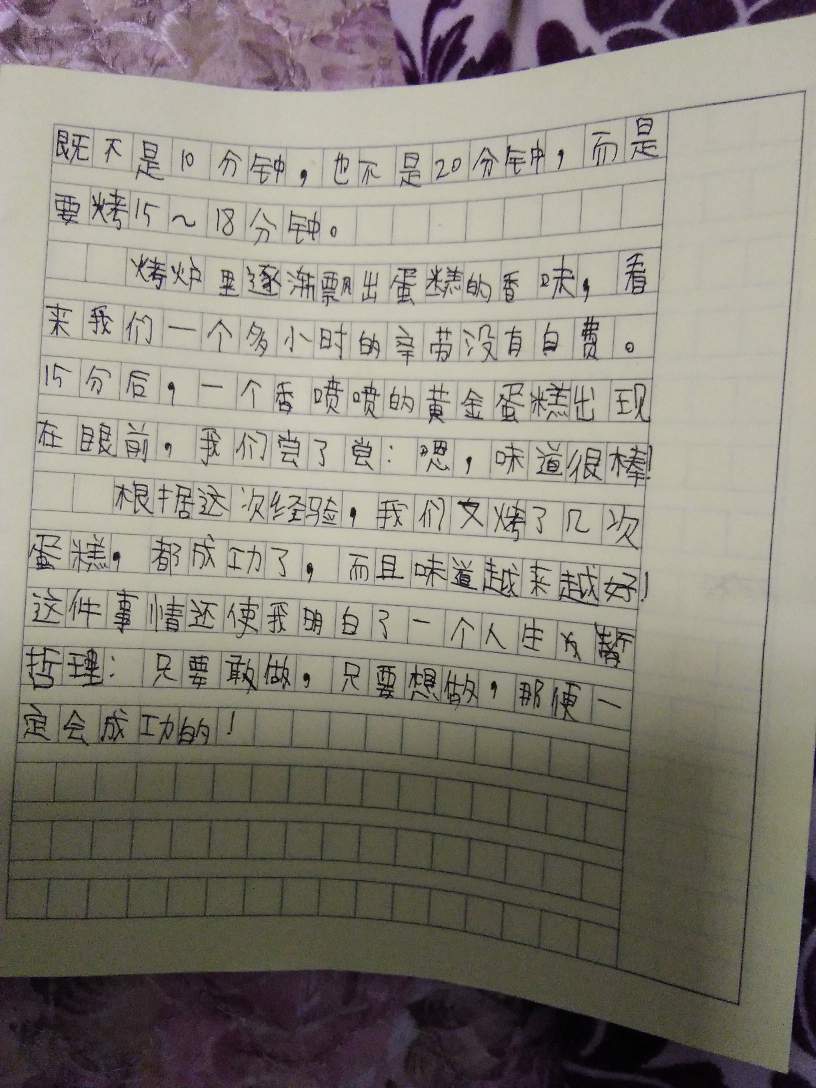 既不是10分钟，也不是20分钟，而是
要烤15～18分钟。
烤炉里逐渐飘出蛋糕的香味，看
来我们一个多小时的辛劳没有白费。
15分后，一个香喷喷的黄金蛋糕出现
在眼前，我们尝了尝：嗯，味道很棒！
根据这次经验，我们又烤了几次
蛋糕，都成功了，而且味道越来越好！
这件事情还使我明白了一个人生
哲理：只要敢做，只要想做，那便一
定会成功的！